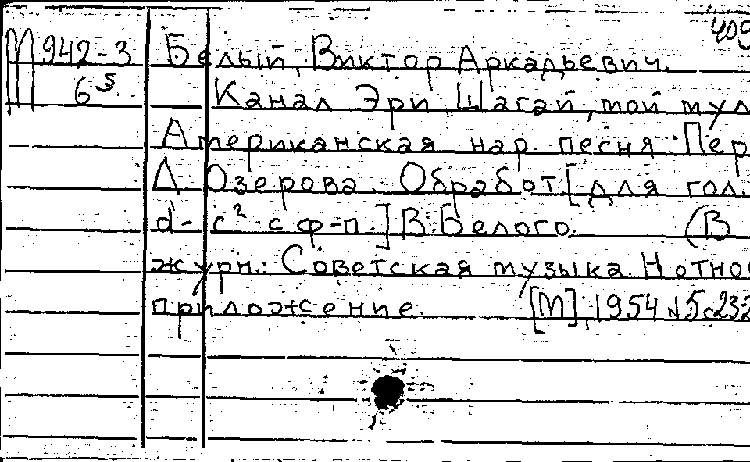 409
М 942-3 Белый, Виктор Аркадьевич.
6⁵ Канал Эри Шагай, мой мул
Американская нар. песня. Пер
Л. Озерова. Обработ. [для гол.
d - c² с ф-п.] В. Белого. (В
журн.: Советская музыка Нотное
приложение. [М], 1954 №5 с232